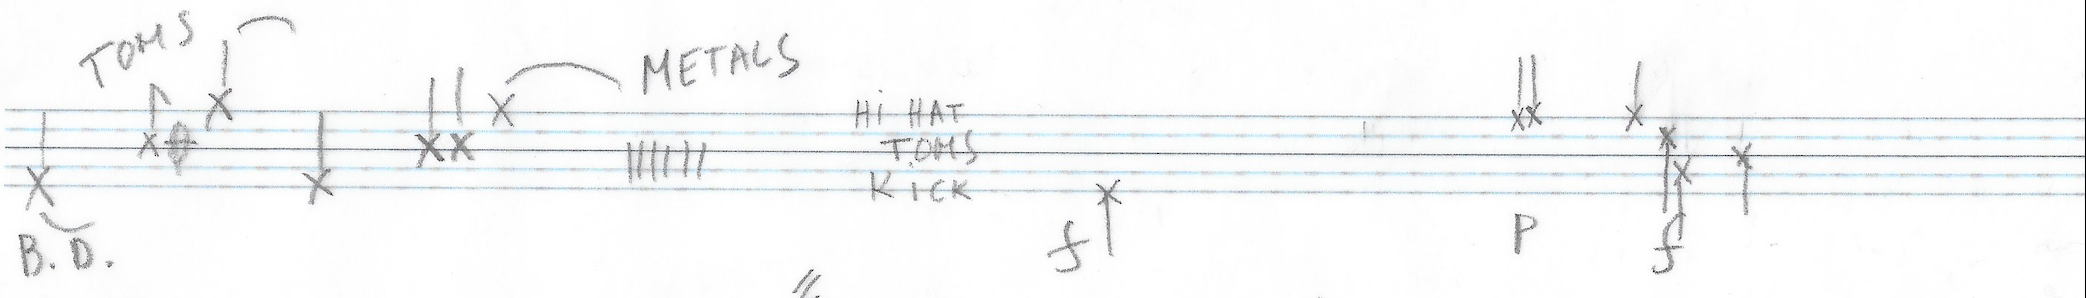 TOMS
METALS
Hi HAT
TOMS
KICK
B.D.
f
P
f